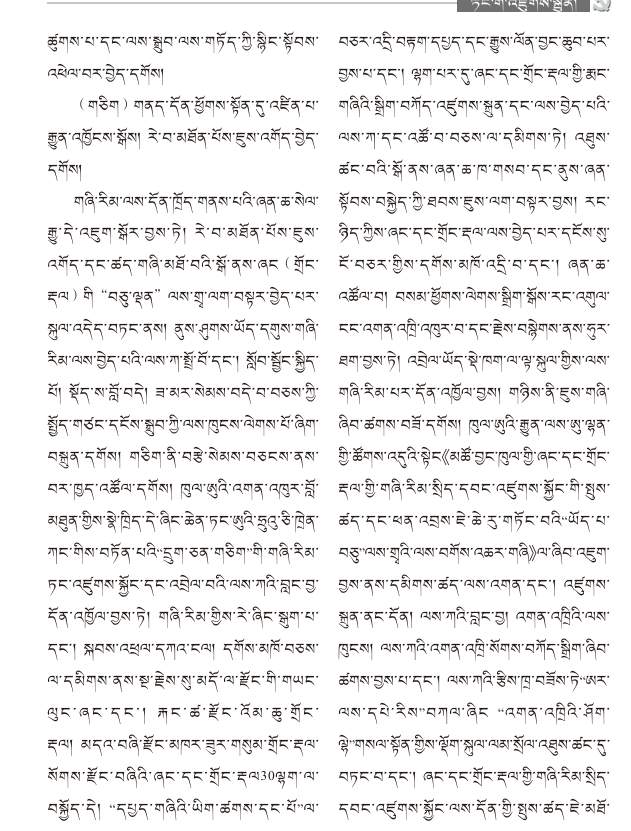 ཏང་གི་འཛུགས་སྐྲུན།
ཚུགས་པ་དང་ལས་སྒྲུབ་ལས་གཏོད་ཀྱི་སྙིང་སྟོབས་
འཕེལ་བར་བྱེད་དགོས།
（གཅིག）གནད་དོན་ཕྱོགས་སྟོན་དུ་འཛིན་པ་
རྒྱུན་འཁྱོངས་སྒོས། རེ་བ་མཐོན་པོས་ཇུས་འགོད་བྱེད་
དགོས།
གཞི་རིམ་ལས་དོན་ཁྲོད་གནས་པའི་ཞན་ཆ་སེལ་
རྒྱུ་དེ་འཇུག་སྒོར་བྱས་ཏེ། རེ་བ་མཐོན་པོས་ཇུས་
འགོད་དང་ཚད་གཞི་མཐོ་བའི་སྒོ་ནས་ཞང（གྲོང་
རྡལ）གི “བཅུ་ལྡན” ལས་གྲྭ་ལག་བསྟར་བྱེད་པར་
སྐུལ་འདེད་བཏང་ནས། ནུས་ཤུགས་ཡོད་དགུས་གཞི་
རིམ་ལས་བྱེད་པའི་ལས་ཀ་སྤྲོ་བོ་དང་། སློབ་སྦྱོང་སྐྱིད་
པོ། སྡོད་ས་བློ་བདེ། ཟ་མར་སེམས་བདེ་བ་བཅས་ཀྱི་
སྤྱོད་གཙང་དངོས་སྒྲུབ་ཀྱི་ལས་ཁུངས་ལེགས་པོ་ཞིག་
བསྐྲུན་དགོས། གཅིག་ནི་བརྩེ་སེམས་བཅངས་ནས་
བར་ཁྱད་འཚོལ་དགོས། ཁུལ་ཨུའི་འགན་འཁུར་བློ་
མཐུན་གྱིས་སྣེ་ཁྲིད་དེ་ཞིང་ཆེན་ཏང་ཨུའི་ཧྲུའུ་ཅི་ཁྲེན་
ཀང་གིས་བཏོན་པའི“དྲུག་ཅན་གཅིག”གི་གཞི་རིམ་
ཏང་འཛུགས་སྐྱོང་དང་འབྲེལ་བའི་ལས་ཀའི་བླང་བྱ་
དོན་འཁྱོལ་བྱས་ཏེ། གཞི་རིམ་གྱིས་རེ་ཞིང་སྒུག་པ་
དང་། སྐབས་འཕྲལ་དཀའ་ངལ། དགོས་མཁོ་བཅས་
ལ་དམིགས་ནས་སྔ་རྗེས་སུ་མདོ་ལ་རྫོང་གི་གཡང་
ལུང་ཞང་དང་། རྐང་ཚ་རྫོང་འོམ་ཆུ་གྲོང་
རྡལ། མདའ་བཞི་རྫོང་མཁར་ཟུར་གསུམ་གྲོང་རྡལ་
སོགས་རྫོང་བཞིའི་ཞང་དང་གྲོང་རྡལ30ལྷག་ལ་
བསྐྱོད་དེ། “དཔྱད་གཞིའི་ཡིག་ཚགས་དང་པོ”ལ་
བཅར་འདྲི་བརྟག་དཔྱད་དང་རྒྱུས་ལོན་བྱང་ཆུབ་པར་
བྱས་པ་དང་། ལྷག་པར་དུ་ཞང་དང་གྲོང་རྡལ་གྱི་རྨང་
གཞིའི་སྒྲིག་བཀོད་འཛུགས་སྐྲུན་དང་ལས་བྱེད་པའི་
ལས་ཀ་དང་འཚོ་བ་བཅས་ལ་དམིགས་ཏེ། འཐུས་
ཚང་བའི་སྒོ་ནས་ཞན་ཆ་ཁ་གསབ་དང་ནུས་ཞན་
སྟོབས་བསྐྱེད་ཀྱི་ཐབས་ཇུས་ལག་བསྟར་བྱས། རང་
ཉིད་ཀྱིས་ཞང་དང་གྲོང་རྡལ་ལས་བྱེད་པར་དངོས་སུ་
ངོ་བཅར་གྱིས་དགོས་མཁོ་འདྲི་བ་དང་། ཞན་ཆ་
འཚོལ་བ། བསམ་ཕྱོགས་ལེགས་སྒྲིག་སྒོས་རང་འགུལ་
ངང་འགན་འཁྲི་འཁུར་བ་དང་རྗེས་བསྙེགས་ནས་ཧུར་
ཐག་བྱས་ཏེ། འབྲེལ་ཡོད་སྡེ་ཁག་ལ་ལྟ་སྐུལ་གྱིས་ལས་
གཞི་རིམ་པར་དོན་འཁྱོལ་བྱས། གཉིས་ནི་ཇུས་གཞི་
ཞིབ་ཚགས་བཟོ་དགོས། ཁུལ་ཨུའི་རྒྱུན་ལས་ཨུ་ལྷན་
གྱི་ཚོགས་འདུའི་སྟེང《མཚོ་བྱང་ཁུལ་གྱི་ཞང་དང་གྲོང་
རྡལ་གྱི་གཞི་རིམ་སྲིད་དབང་འཛུགས་སྐྱོང་གི་སྤུས་
ཚད་དང་ཕན་འབྲས་ཇེ་ཆེ་རུ་གཏོང་བའི“ཡོད་པ་
བཅུ”ལས་གྲྭའི་ལས་བགོས་འཆར་གཞི》ལ་ཞིབ་འཇུག་
བྱས་ནས་དམིགས་ཚད་ལས་འགན་དང་། འཛུགས་
སྐྲུན་ནང་དོན། ལས་ཀའི་བླང་བྱ། འགན་འཁྲིའི་ལས་
ཁུངས། ལས་ཀའི་འགན་འཁྲི་སོགས་བཀོད་སྒྲིག་ཞིབ་
ཚགས་བྱས་པ་དང་། ལས་ཀའི་རྩིས་ཁྲ་བཟོས་ཏེ“ཨར་
ལས་དཔེ་རིས”བཀལ་ཞིང “འགན་འཁྲིའི་ཤོག་
ལྷེ”གསལ་སྟོན་གྱིས་ལྡོག་སྐུལ་ལམ་སྲོལ་འཐུས་ཚང་དུ་
བཏང་བ་དང་། ཞང་དང་གྲོང་རྡལ་གྱི་གཞི་རིམ་སྲིད་
དབང་འཛུགས་སྐྱོང་ལས་དོན་གྱི་སྤུས་ཚད་ཇེ་མཐོ་